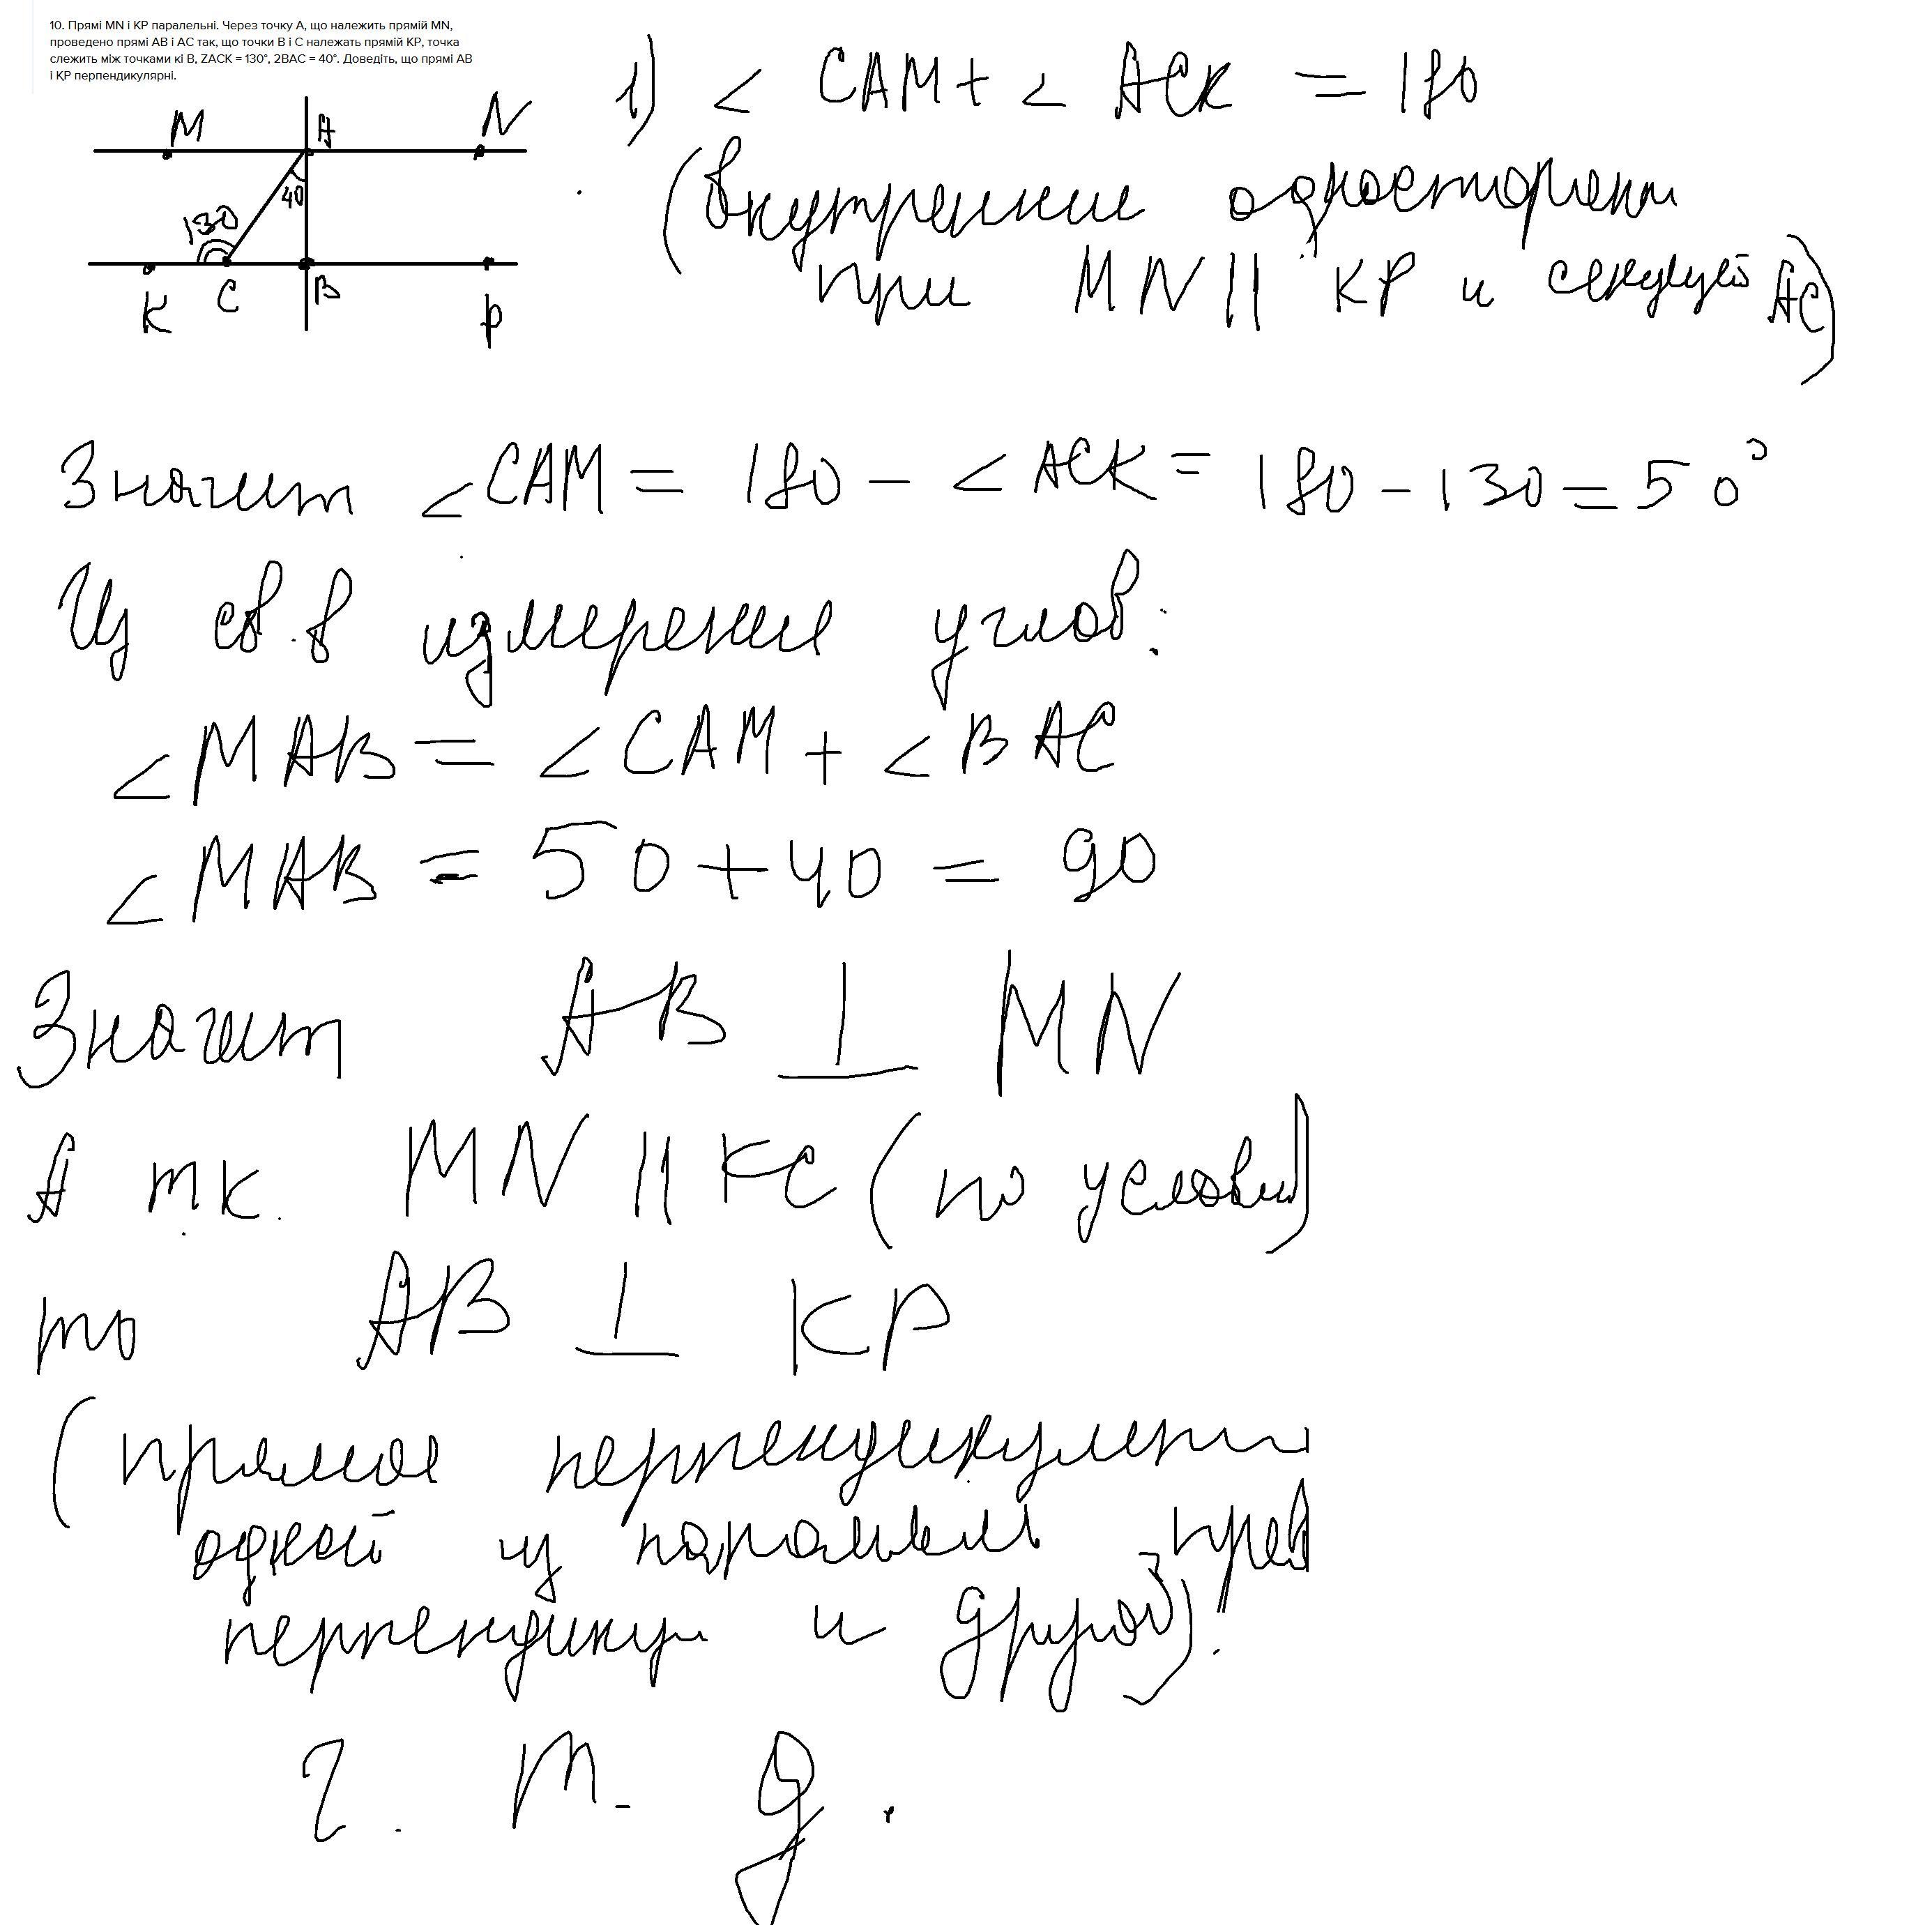 10. Прямі MN і KP паралельні. Через точку А, що належить прямій MN,
проведено прямі АВ і АС так, що точки В і С належать прямій КР, точка
слежить між точками кі В, ZACK = 130°, 2BAC = 40°. Доведіть, що прямі АВ
і КР перпендикулярні.
M A N
40
130
K C B P
1) < CAM + < ACK = 180
(внутренние односторонн
при MN || KP и секущей AC)
Значит <CAM = 180 - <ACK = 180 - 130 = 50°
Из св.в измерение углов:
<MAB = <CAM + <BAC
<MAB = 50 + 40 = 90
Значит AB ⊥ MN
А т.к. MN || KC (по услови)
то AB ⊥ KP
(прямая перпендикулярн
одной из параллел прям
перпендикул и другой).
Ч. т. д.